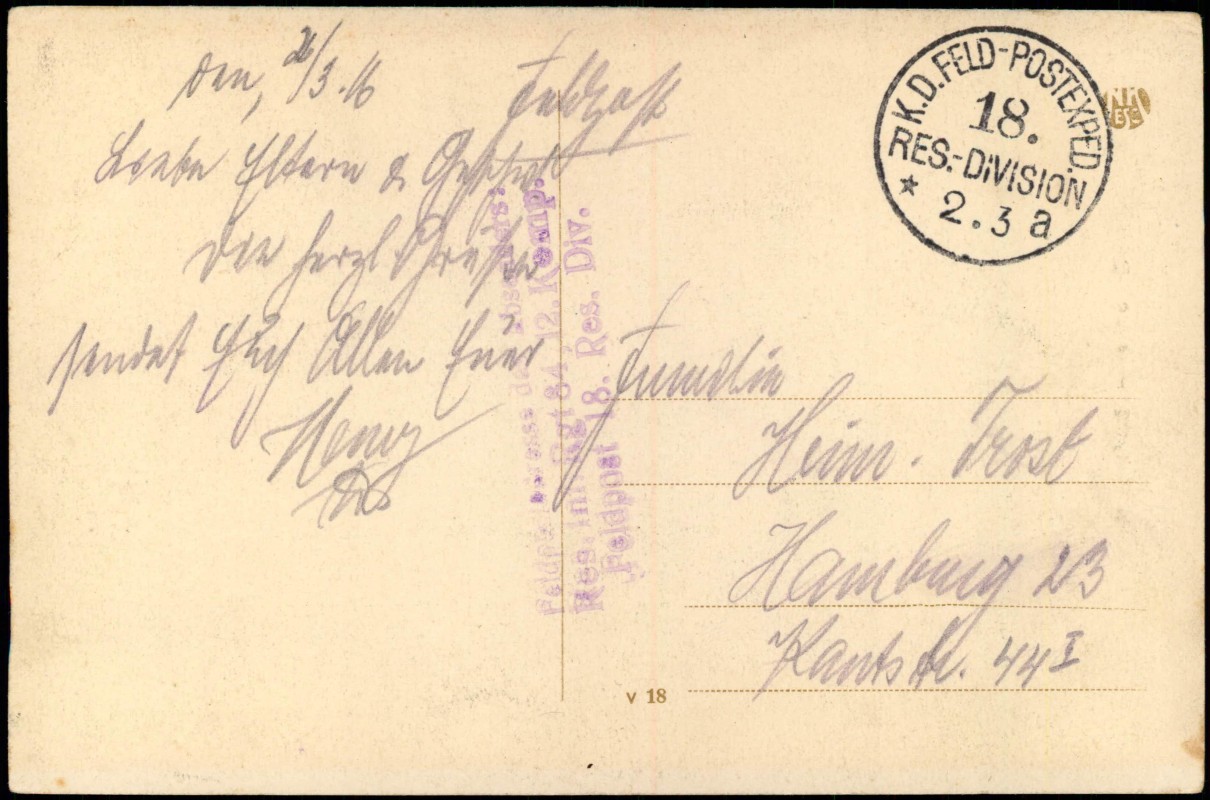 den, 2/3.16
Feldpost
Liebe Eltern & Geschw.
Die herzl. Grüße
sendet Euch Allen Euer
Henry
K.D. FELD-POSTEXPED.
18.
RES.-DIVISION
* 2.3 a
Res. Inf. Rgt 84, 12. Komp.
Feldpost 18. Res. Div.
Familie
Heinr. Trost
Hamburg 23
Kantstr. 44 I
V 18